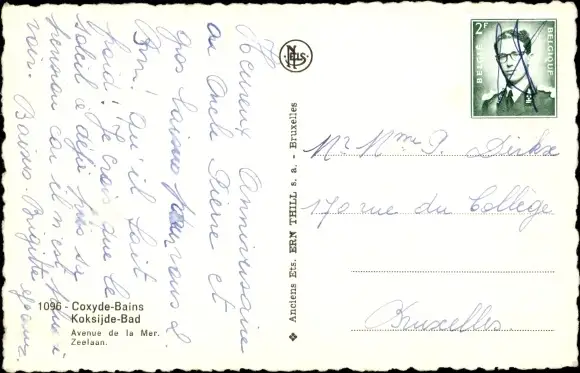 Heureux Anniversaire
on Oncle Pierre et
gros baisers pour vous d.
Bri. Qu'il fait
froid! Je crois que le
soleil a déjà pris sa
car il n'est plus
Baisers. Brigitte
1096 - Coxyde-Bains
Koksijde-Bad
Avenue de la Mer.
Zeelaan.
NELS
❖ Anciens Ets. ERN THILL s. a. - Bruxelles
2F
BELGIË BELGIQUE
Mr Mme P. Dirkx
170 rue du Collège
Bruxelles.